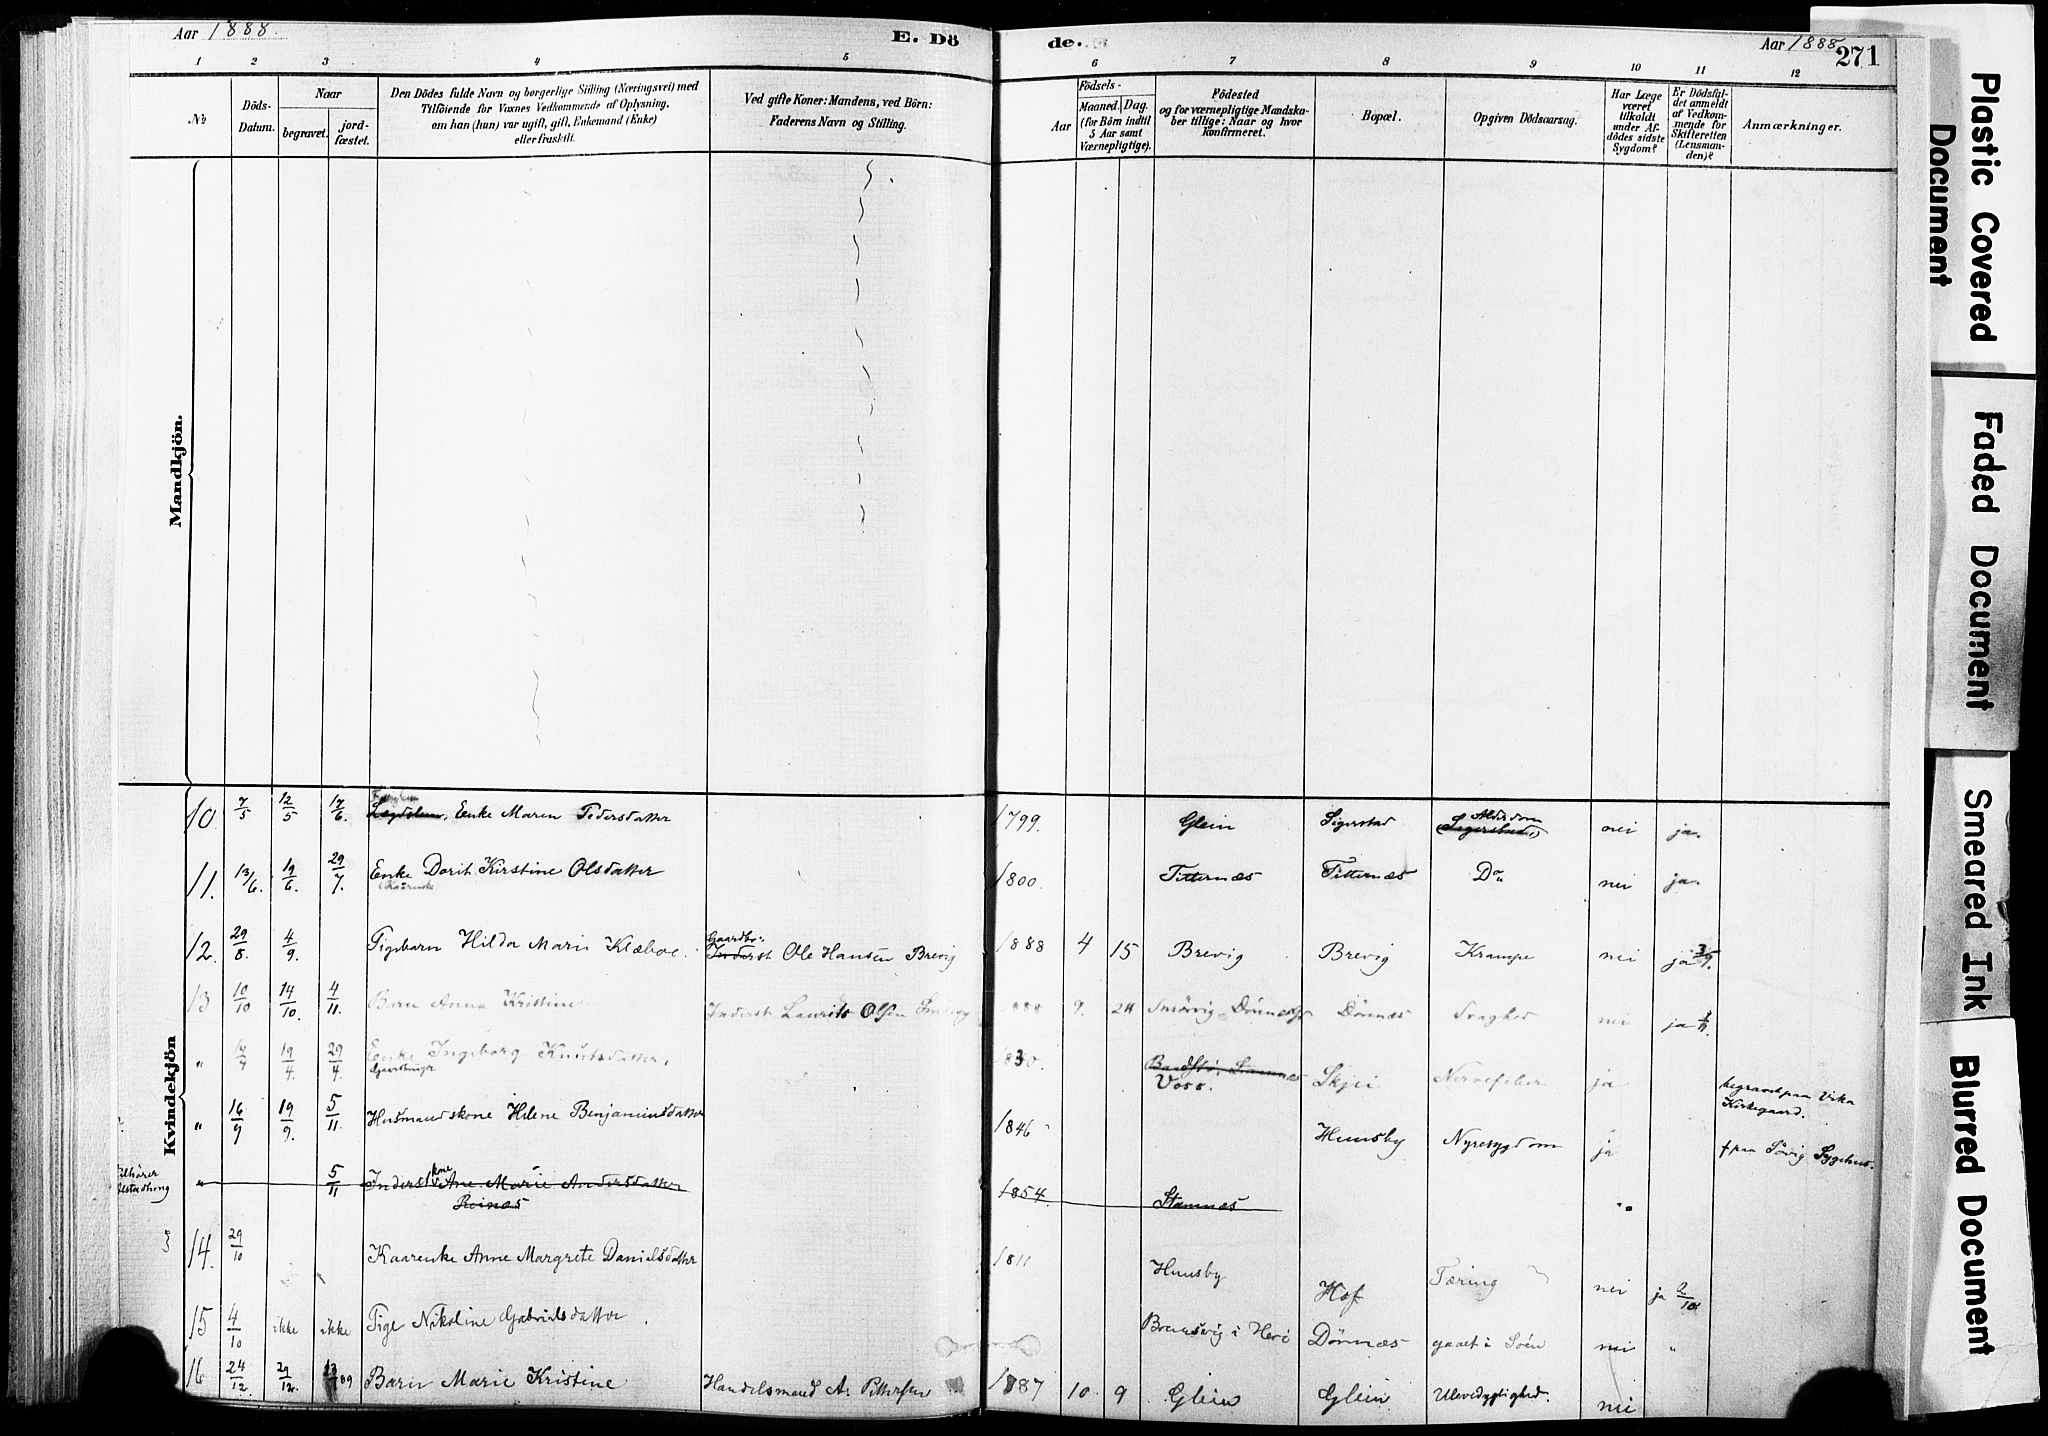 Aar 1888.
E. Dö
de.
Aar 1888
271
1
2
3
4
5
6
7
8
9
10
11
12
№
Döds-
Datum.
Naar
begravet.
jord-
fæstet.
Den Dödes fulde Navn og borgerlige Stilling (Næringsvei) med
Tilföiende for Voxnes Vedkommende af Oplysning,
om han (hun) var ugift, gift, Enkemand (Enke)
eller fraskilt.
Ved gifte Koner: Mandens, ved Börn:
Faderens Navn og Stilling.
Födsels-
Aar
Maaned.
Dag.
(for Börn indtil
5 Aar samt
Værnepligtige).
Födested
og for værnepligtige Mandska-
ber tillige: Naar og hvor
konfirmeret.
Bopæl.
Opgiven Dödsaarsag.
Har Læge
været
tilkaldt
under Af-
dödes sidste
Sygdom?
Er Dödsfal-
det anmeldt
af Vedkom-
mende for
Skifteretten
(Lensman-
den)?
Anmærkninger.
Mandkjön.
Kvindekjön
10 7/5 12/5 17/6. Lægdslem, Enke Maren Pedersdatter 1799. Glein Sigerstad Alderdom (Sigerstad) nei ja.
11. 13/6. 19/6. 29/7. Enke Dorit Kirstine Olsdatter 1800. Titternæs Titternæs Do nei ja.
Kaarenke
12. 29/8. 4/9. Pigebarn Hilda Marie Klæboe. Gaardbr: Inderst Ole Hansen Brevig 1888 4 15 Brevig Brevig Krampe nei ja 3/9.
13 10/10 14/10. 4/11. Barn Anna Kristine Inderst Laurits Olsen 888 9. 24 Dønnæs Dønnæs Svaghed nei ja
" 19/4. 29/4. Enke Ingeborg Knutsdatter, 1830. Stamnæs Voss. Skjei Nervefeber ja begravet paa
Kirkegaard.
" 16/9 19/9. 5/11. Husmandskone Helene Benjaminsdatter 1846 Hunsby Nyresygdom ja † paa Søvig Sygehus.
Tilhører
Alstadhaug
" 5/11 Inderstkone Ane Marie Andersdatter 1854. Stamnæs "
Reinæs
14. 29/10 Kaarenke Anne Margrete Danielsdatter 1811 Hunsby Hof Tæring nei ja 2/10
15 4/10 ikke ikke Pige Nikoline Gabrielsdatter. i Herø Dønnæs gaaet i Søen nei "
16 24/12. 29/12. 89 Barn Marie Kristine Handelsmand A. Pettersen 1887 10 9 Glein Glein Ulevedygtighed. nei
Plastic Covered
Document
Faded Document
Smeared Ink
Blurred Document